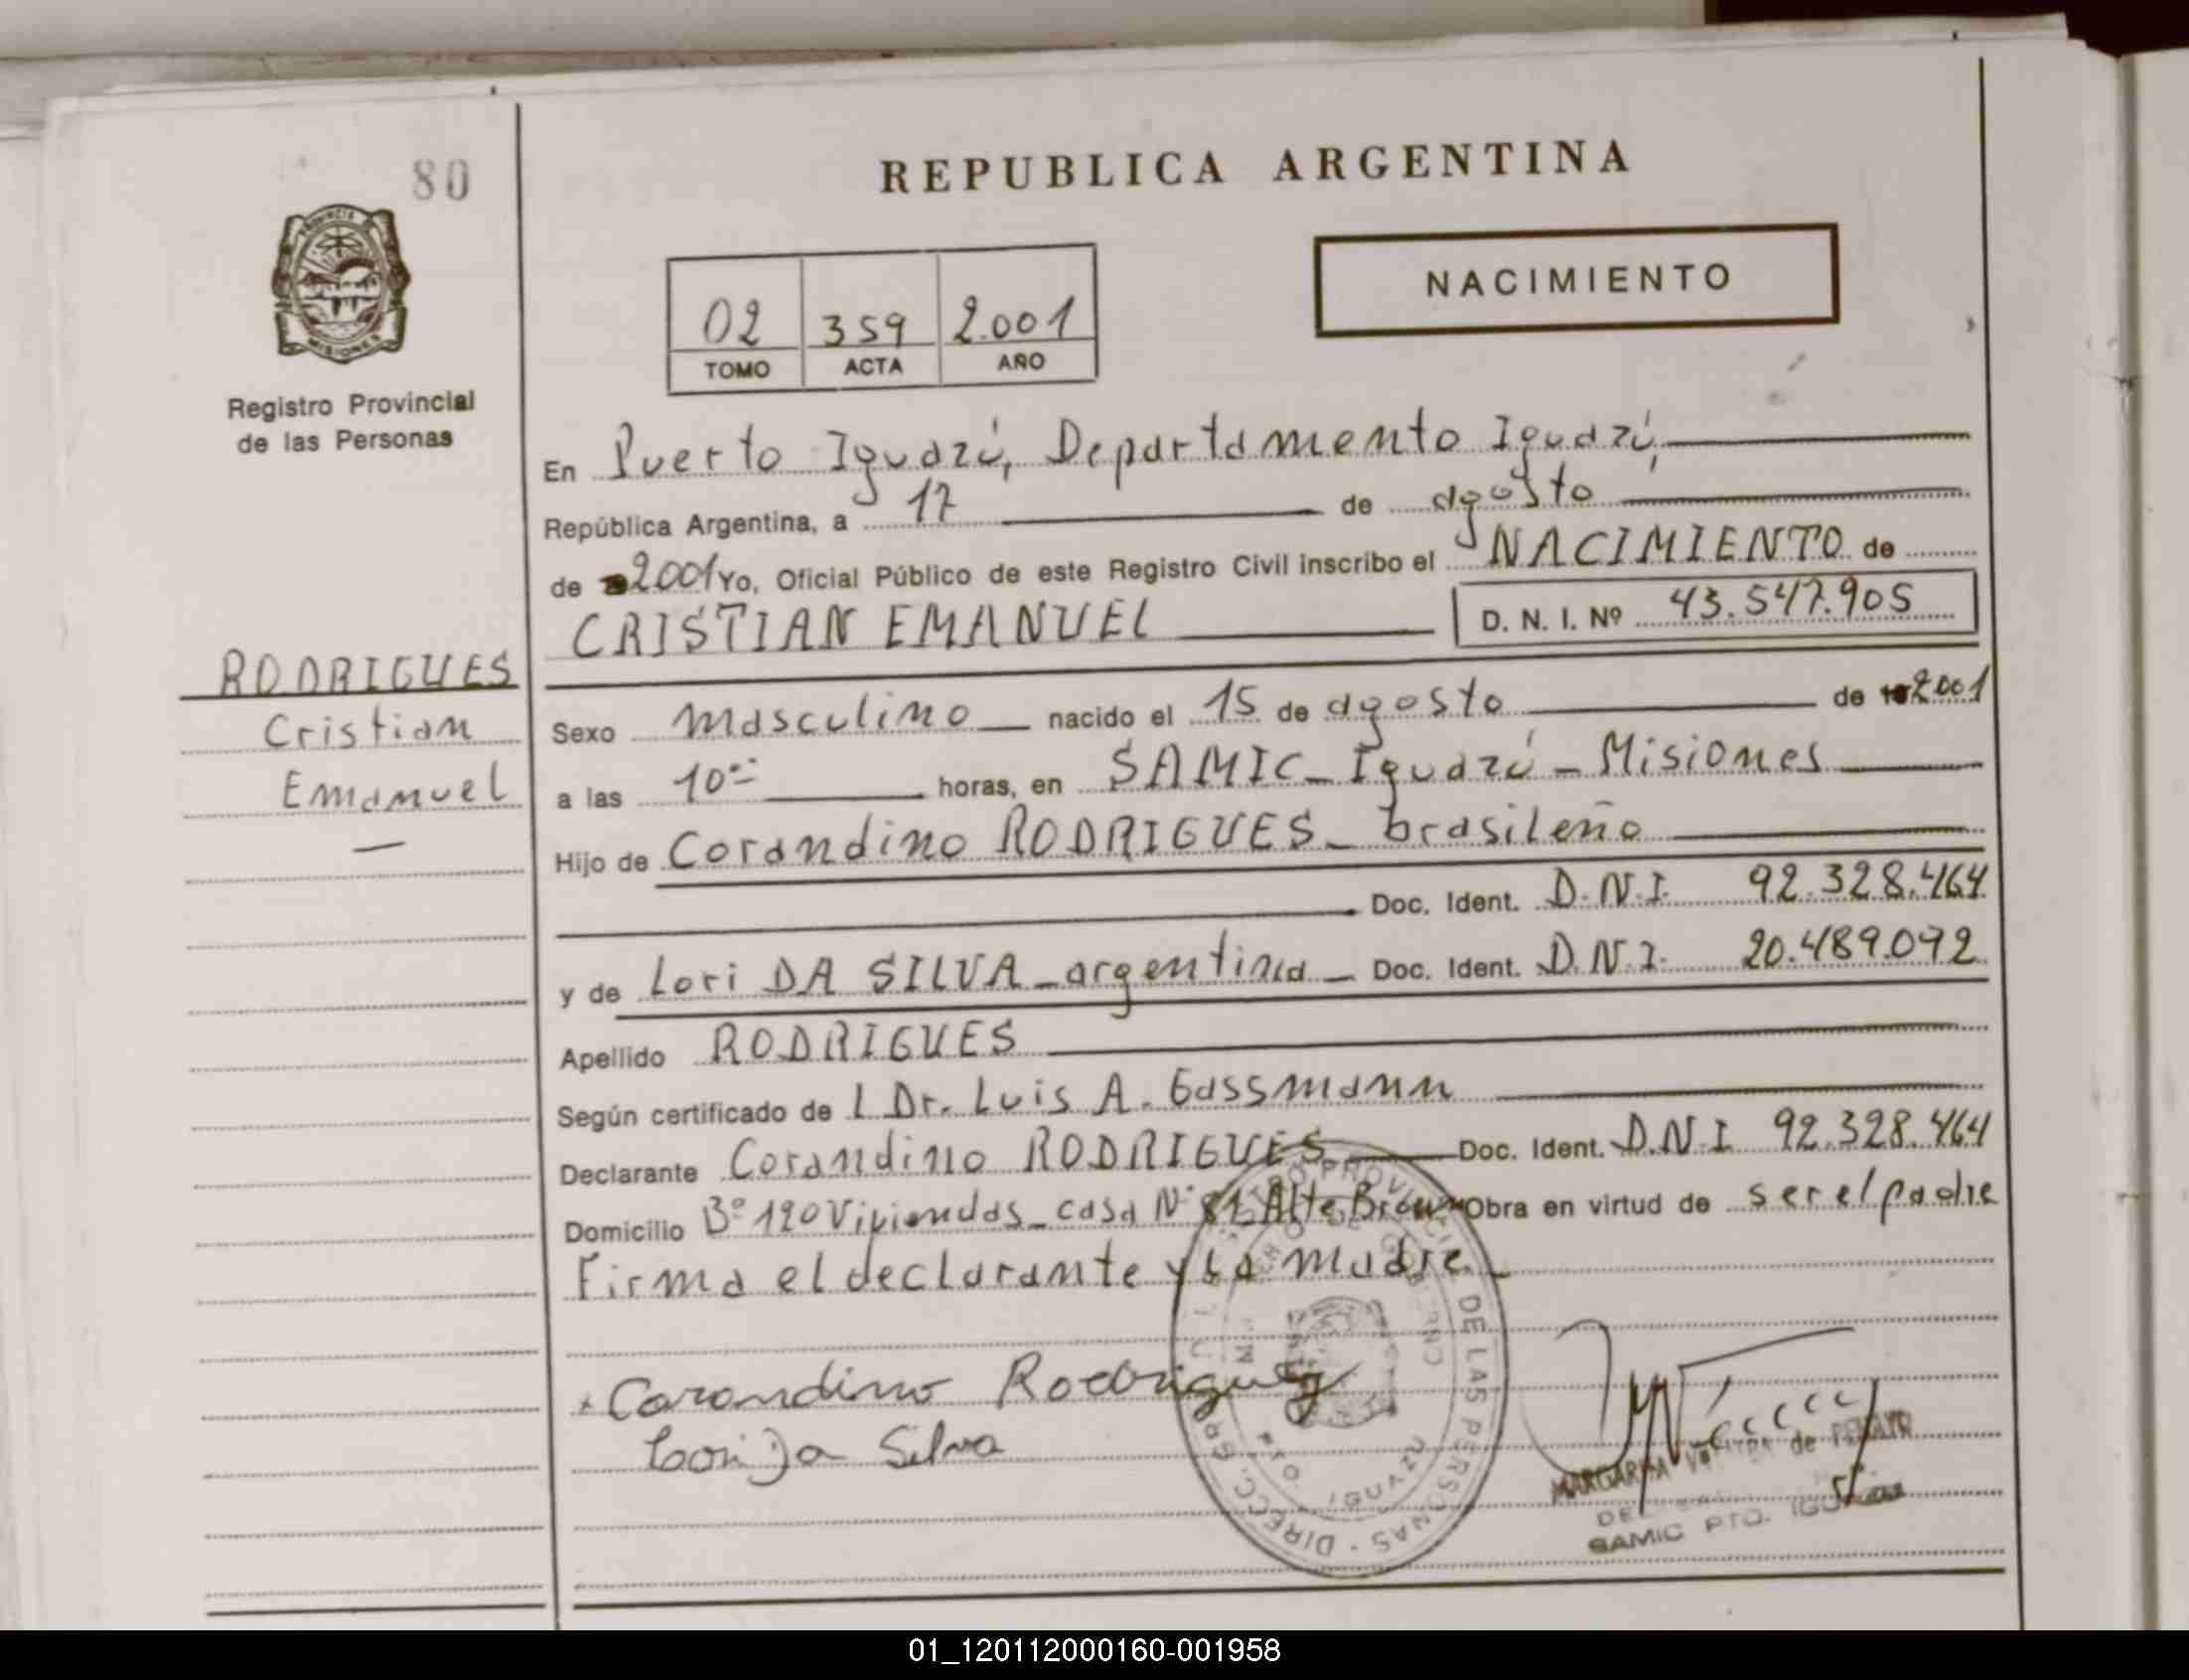 80
REPUBLICA ARGENTINA
PROVINCIA
MISIONES
NACIMIENTO
02 359 2.001
TOMO ACTA AÑO
Registro Provincial
de las Personas
En Puerto Iguazú, Departamento Iguazú,
República Argentina, a 17 de agosto
de 2001 Yo, Oficial Público de este Registro Civil inscribo el NACIMIENTO de
CRISTIAN EMANUEL D. N. I. Nº 43.547.905
RODRIGUES
Cristian
Emanuel
Sexo masculino nacido el 15 de agosto de 2001
a las 10 horas, en SAMIC - Iguazú - Misiones
Hijo de Corandino RODRIGUES - brasileño
Doc. Ident. D.N.I. 92.328.464
y de Lori DA SILVA - argentina - Doc. Ident. D.N.I. 20.489.092
Apellido RODRIGUES
Según certificado de l Dr. Luis A. Gassmann
Declarante Corandino RODRIGUES Doc. Ident. D.N.I 92.328.464
Domicilio Bº 120 Viviendas - casa Nº 81 Alte Brown Obra en virtud de ser el padre
Firma el declarante y la madre -
Corandino Rodrigues
Lori Da Silva
DIRECC. GRAL. DE LAS PERSONAS
IGUAZU
MARGARITA de
SAMIC PTO. IGUAZU
01_120112000160-001958